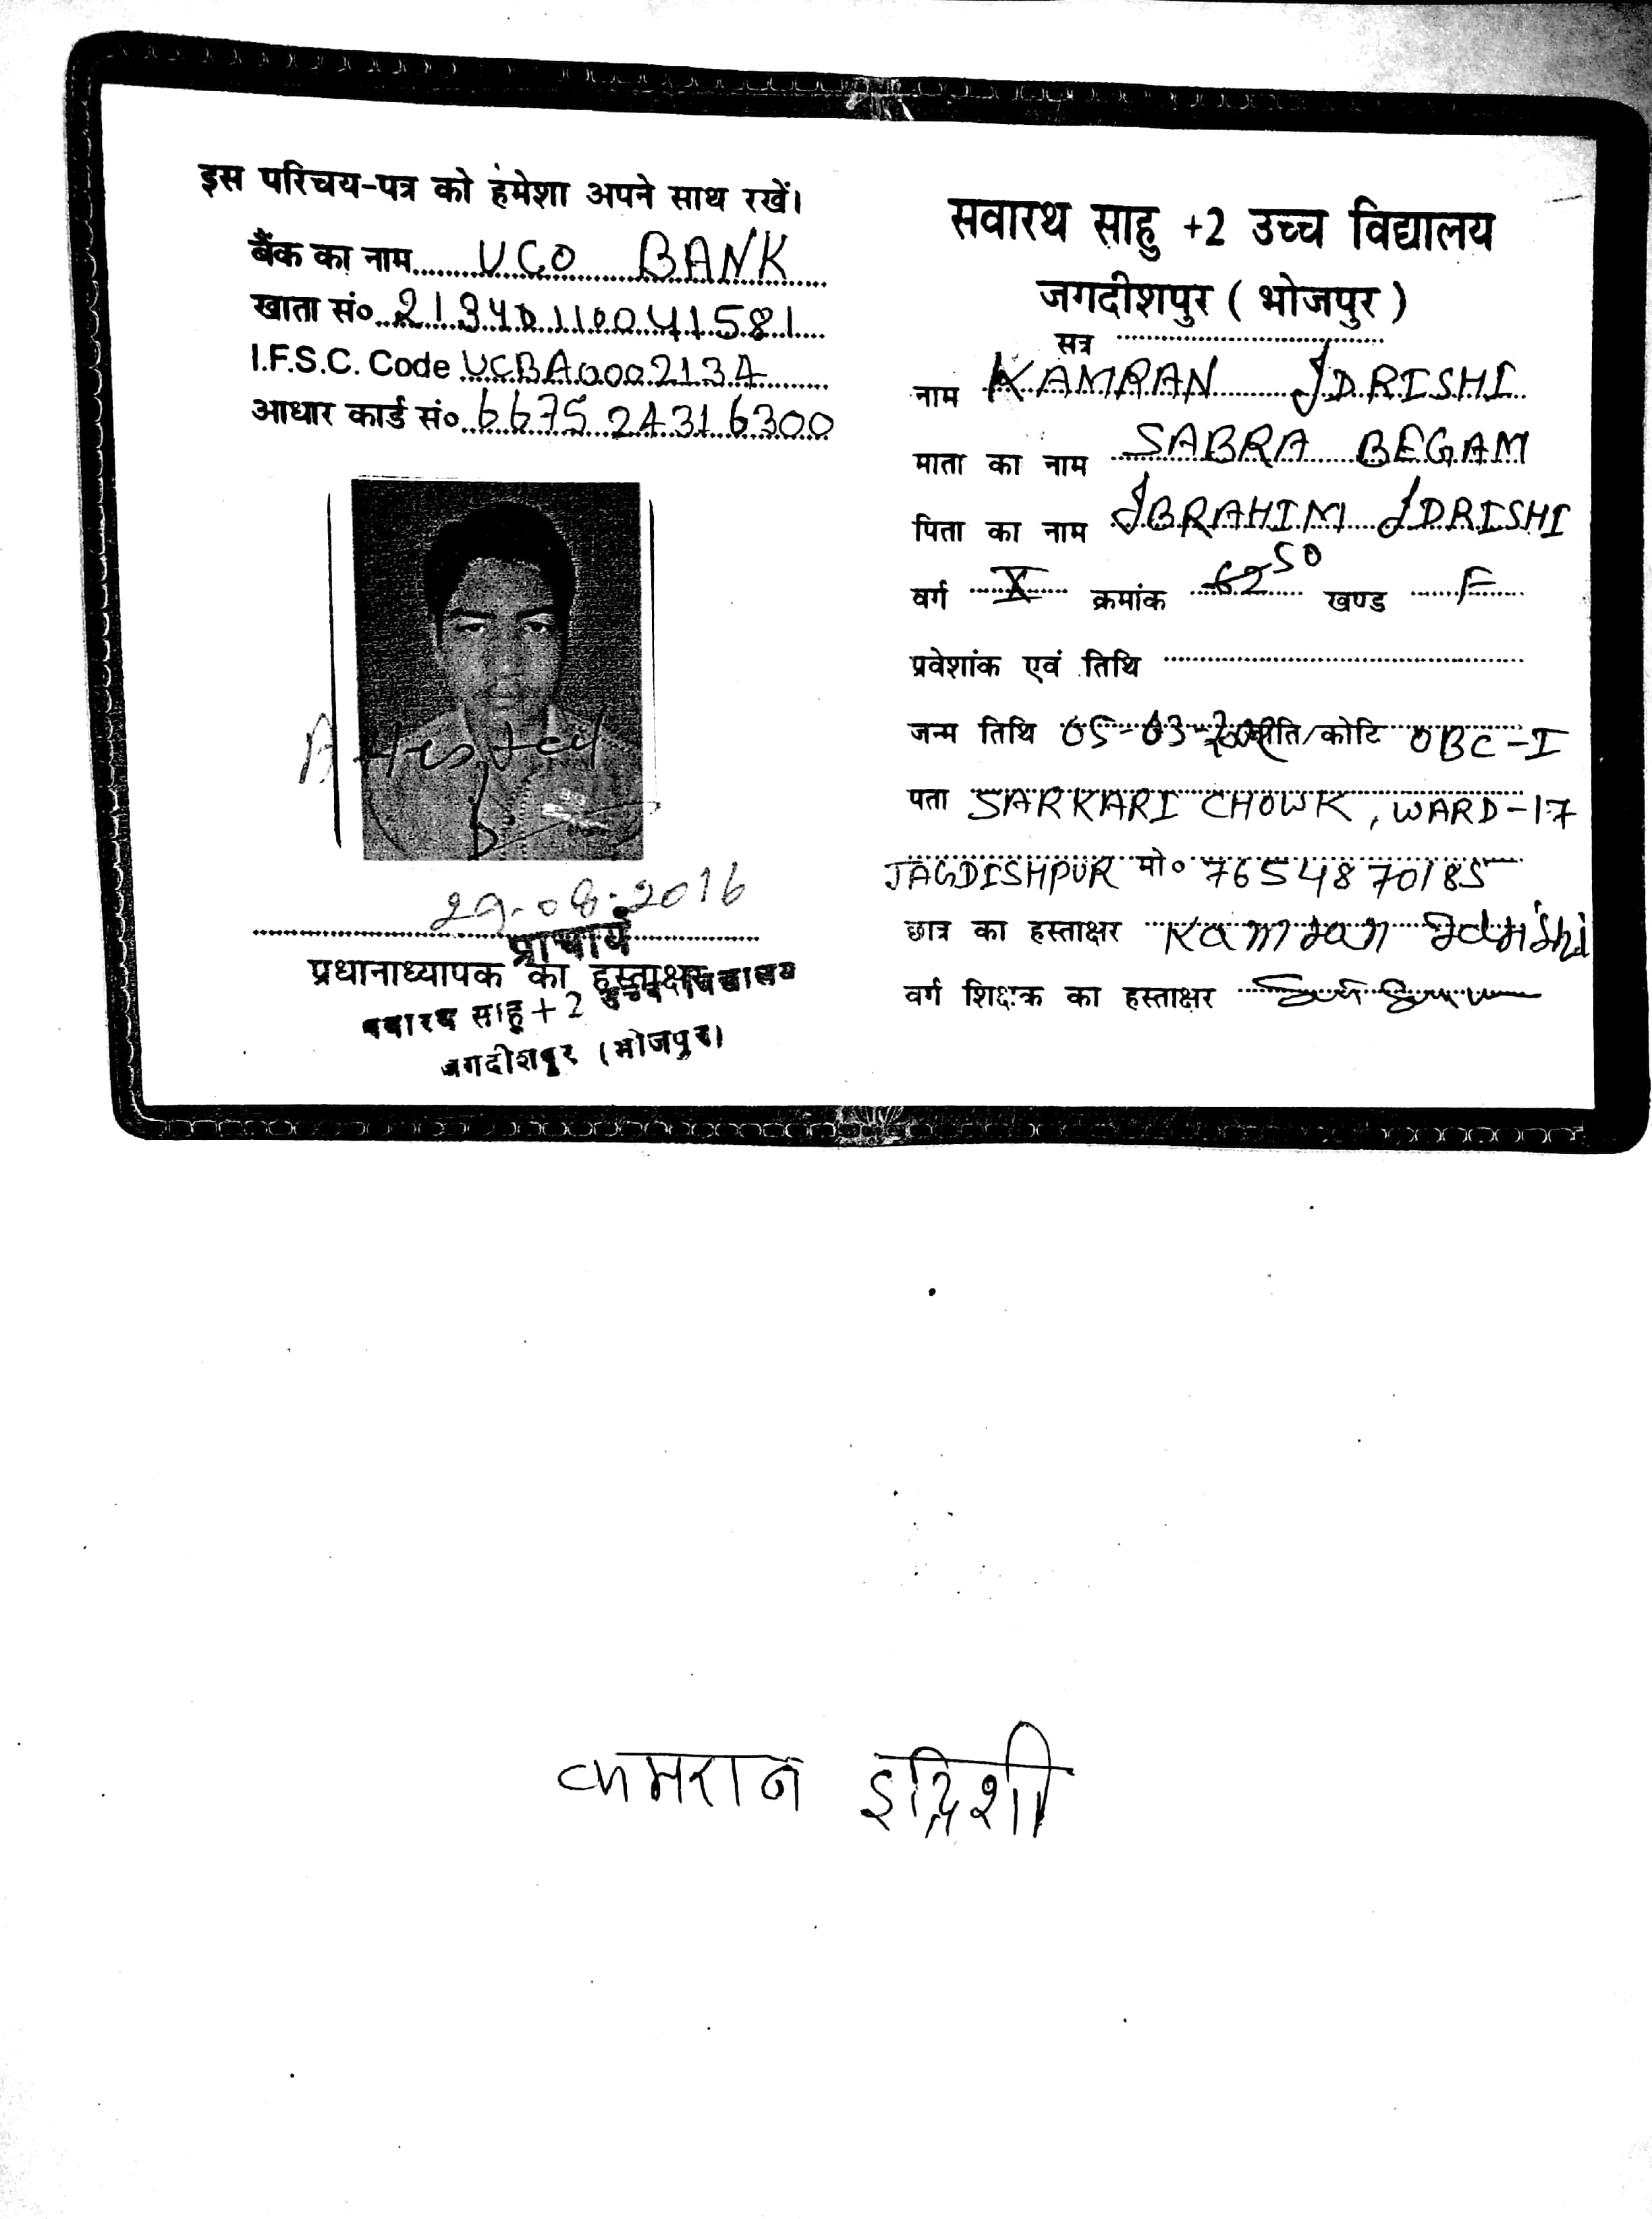 इस परिचय-पत्र को हमेशा अपने साथ रखें।
बैंक का नाम UCO BANK
खाता सं० 21340110041581
I.F.S.C. Code UCBA0002134
आधार कार्ड सं० 667524316300
Attested
29.08.2016
प्राचार्य
प्रधानाध्यापक का हस्ताक्षर
सवारथ साहू +2 उच्च विद्यालय
जगदीशपुर (भोजपुर)
सवारथ साहु +2 उच्च विद्यालय
जगदीशपुर ( भोजपुर )
सत्र
नाम KAMRAN IDRISHI
माता का नाम SABRA BEGAM
पिता का नाम IBRAHIM IDRISHI
वर्ग X क्रमांक 62 50 खण्ड F
प्रवेशांक एवं तिथि
जन्म तिथि 05-03- जाति/कोटि OBC-I
पता SARKARI CHOWK, WARD-17
JAGDISHPUR मो० 7654870185
छात्र का हस्ताक्षर Kamran Idrishi
वर्ग शिक्षक का हस्ताक्षर
कामरान इद्रिशी